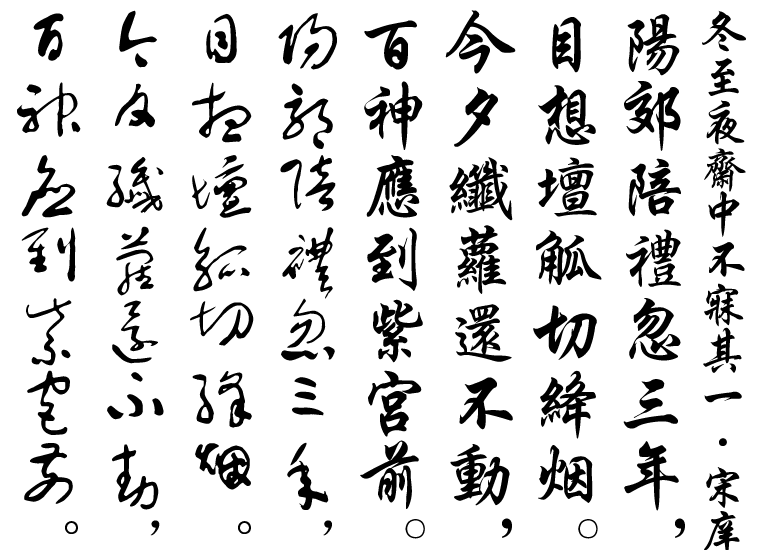 冬至夜齋中不寐其一·宋庠
陽郊陪禮忽三年，
目想壇觚切絳烟。
今夕纖蘿還不動，
百神應到紫宮前。
陽郊陪禮忽三年，
目想壇觚切絳烟。
今夕纖蘿還不動，
百神應到紫宮前。